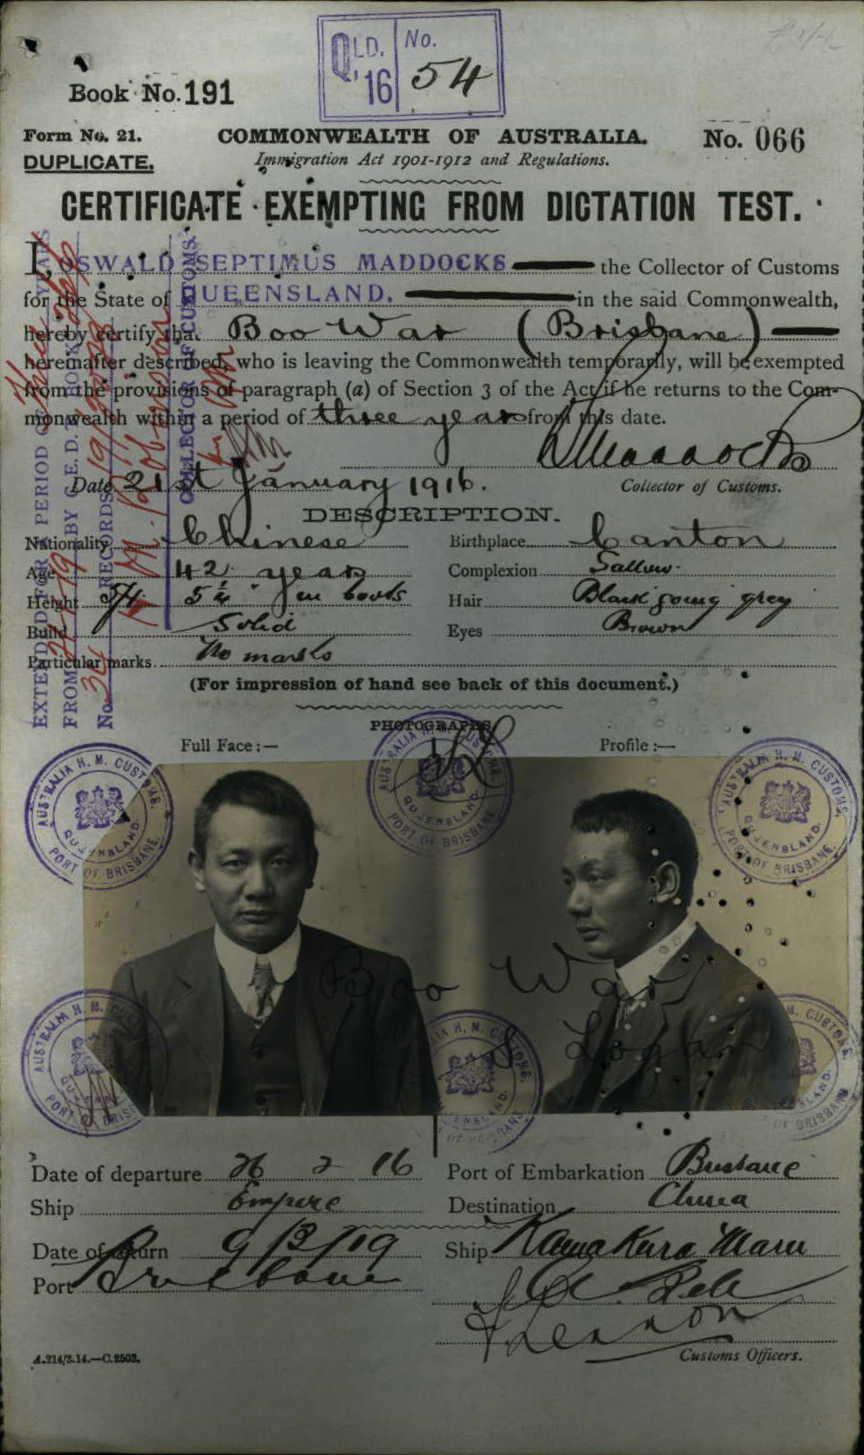 QLD. No.
'16 54
Book No. 191
Form No. 21. COMMONWEALTH OF AUSTRALIA. No. 066
DUPLICATE. Immigration Act 1901-1912 and Regulations.
CERTIFICATE EXEMPTING FROM DICTATION TEST.
I, OSWALD SEPTIMUS MADDOCKS the Collector of Customs
for the State of QUEENSLAND. in the said Commonwealth,
hereby certify that Boo War (Brisbane)
hereinafter described, who is leaving the Commonwealth temporarily, will be exempted
from the provisions of paragraph (a) of Section 3 of the Act if he returns to the Com-
monwealth within a period of three years from this date.
Date 21st January 1916. Collector of Customs.
DESCRIPTION.
Nationality Chinese Birthplace Canton
Age 42 years Complexion Sallow
Height 5' 4" in boots Hair Black going grey
Build Solid Eyes Brown
Particular marks. No marks
(For impression of hand see back of this document.)
PHOTOGRAPHS.
Full Face:— Profile:—
AUSTRALIA H. M. CUSTOMS.
QUEENSLAND.
PORT OF BRISBANE
Boo War
Logan
Date of departure 26 2 16 Port of Embarkation Brisbane
Ship Empire Destination China
Date of return 9/3/19 Ship Kamakura Maru
Port Brisbane
Customs Officers.
A.214/3.14.—C.2503.
EXTENDED FOR A PERIOD OF YEARS
FROM BY C. E. D.
No. RECORDS
COLLECTOR OF CUSTOMS.